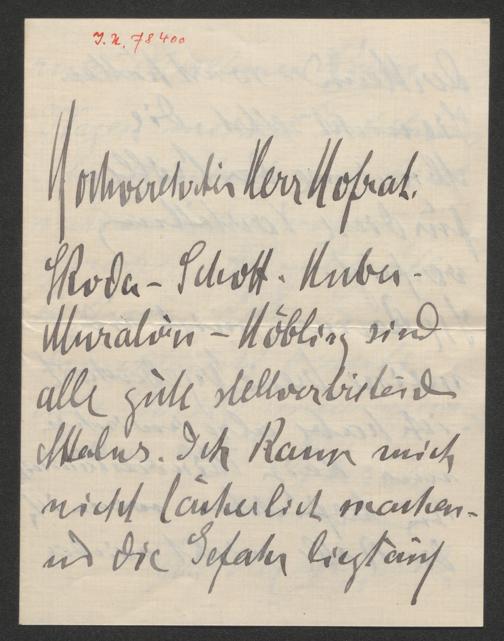 J.N. 78400
Hochverehrter Herr Hofrat.
Skoda – Schott – Huber –
Muratori – Höbling sind
alle gute stellvertretende
Ich kann mich
nicht lächerlich machen –
und die Gefahr liegt auf